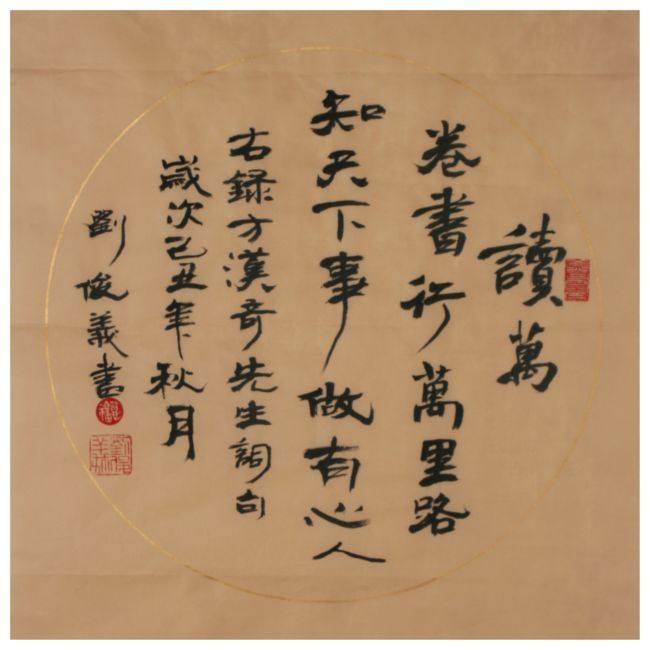 讀萬
卷書行萬里路
知天下事做有心人
右錄方漢奇先生詞句
歲次己丑年秋月
劉俊義書